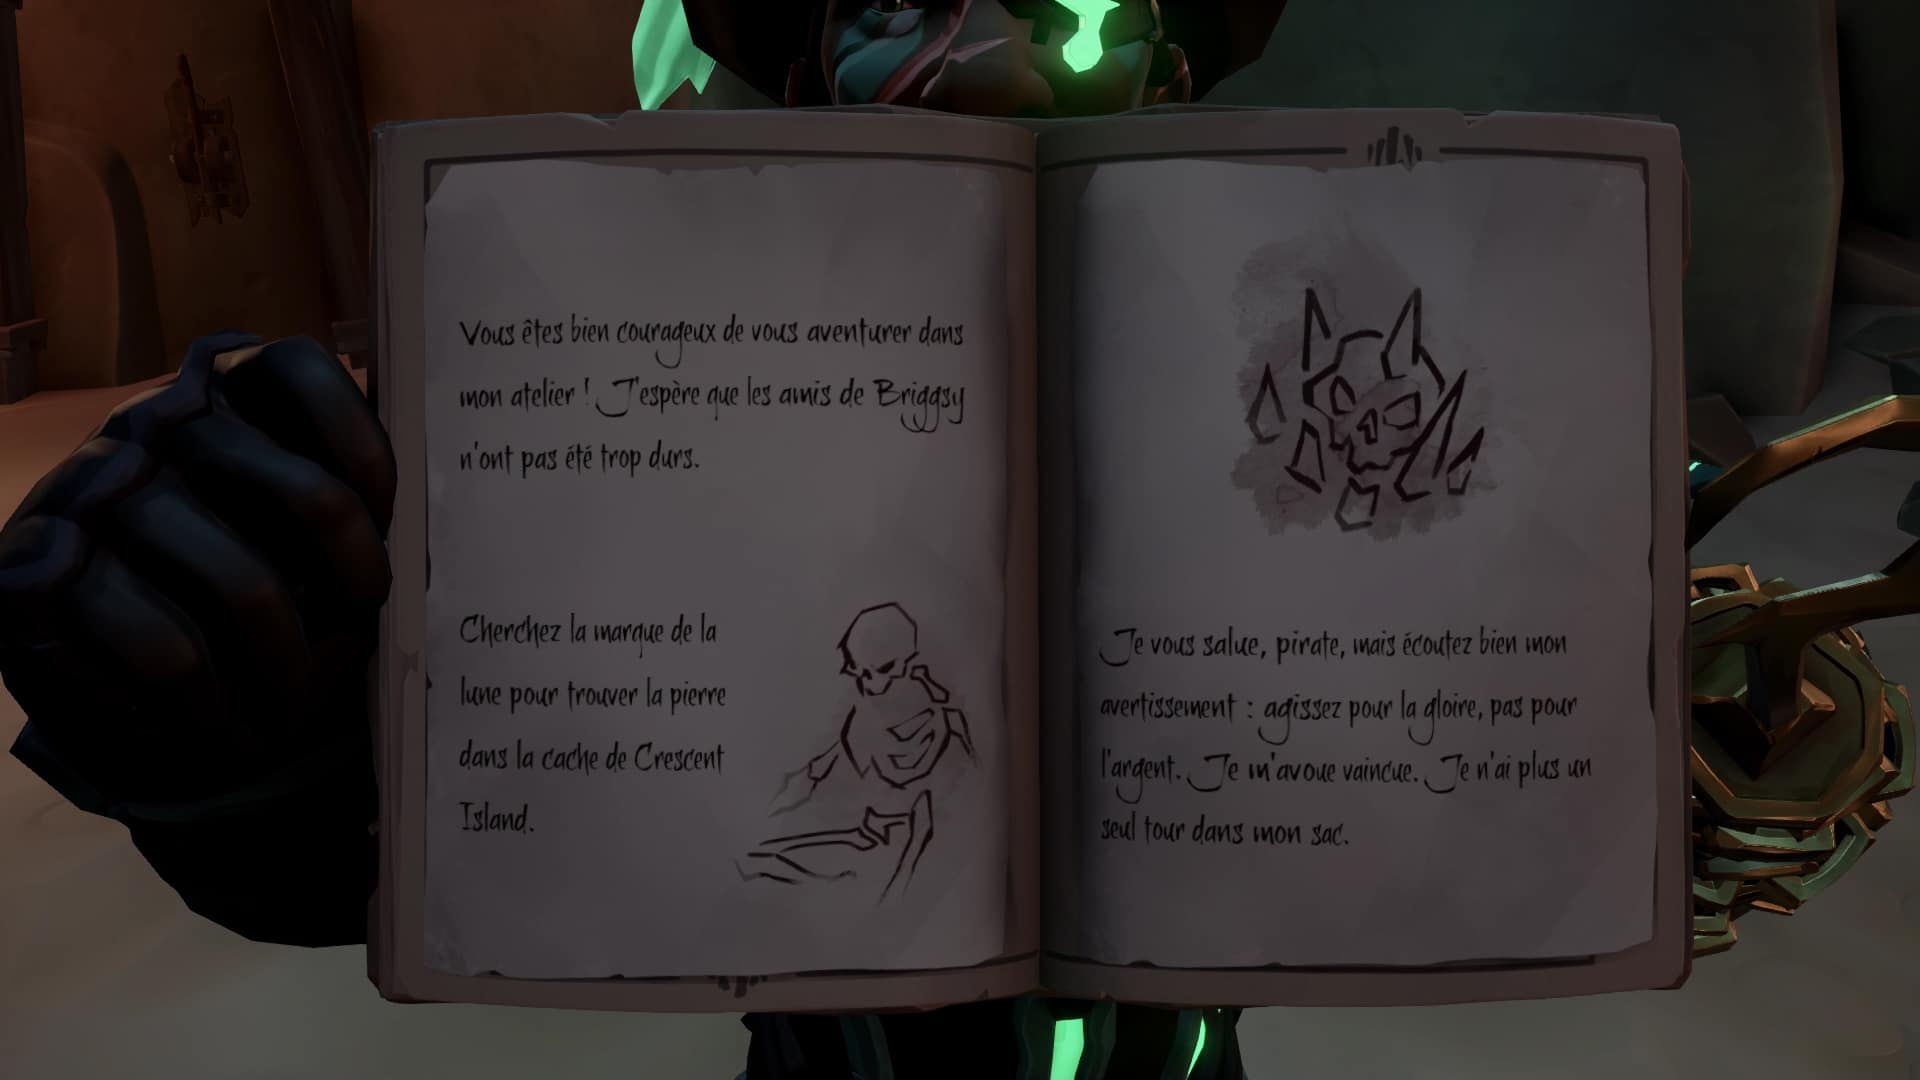 Vous êtes bien courageux de vous aventurer dans
mon atelier ! J'espère que les amis de Briggsy
n'ont pas été trop durs.
Cherchez la marque de la
lune pour trouver la pierre
dans la cache de Crescent
Island.
Je vous salue, pirate, mais écoutez bien mon
avertissement : agissez pour la gloire, pas pour
l'argent. Je m'avoue vaincue. Je n'ai plus un
seul tour dans mon sac.